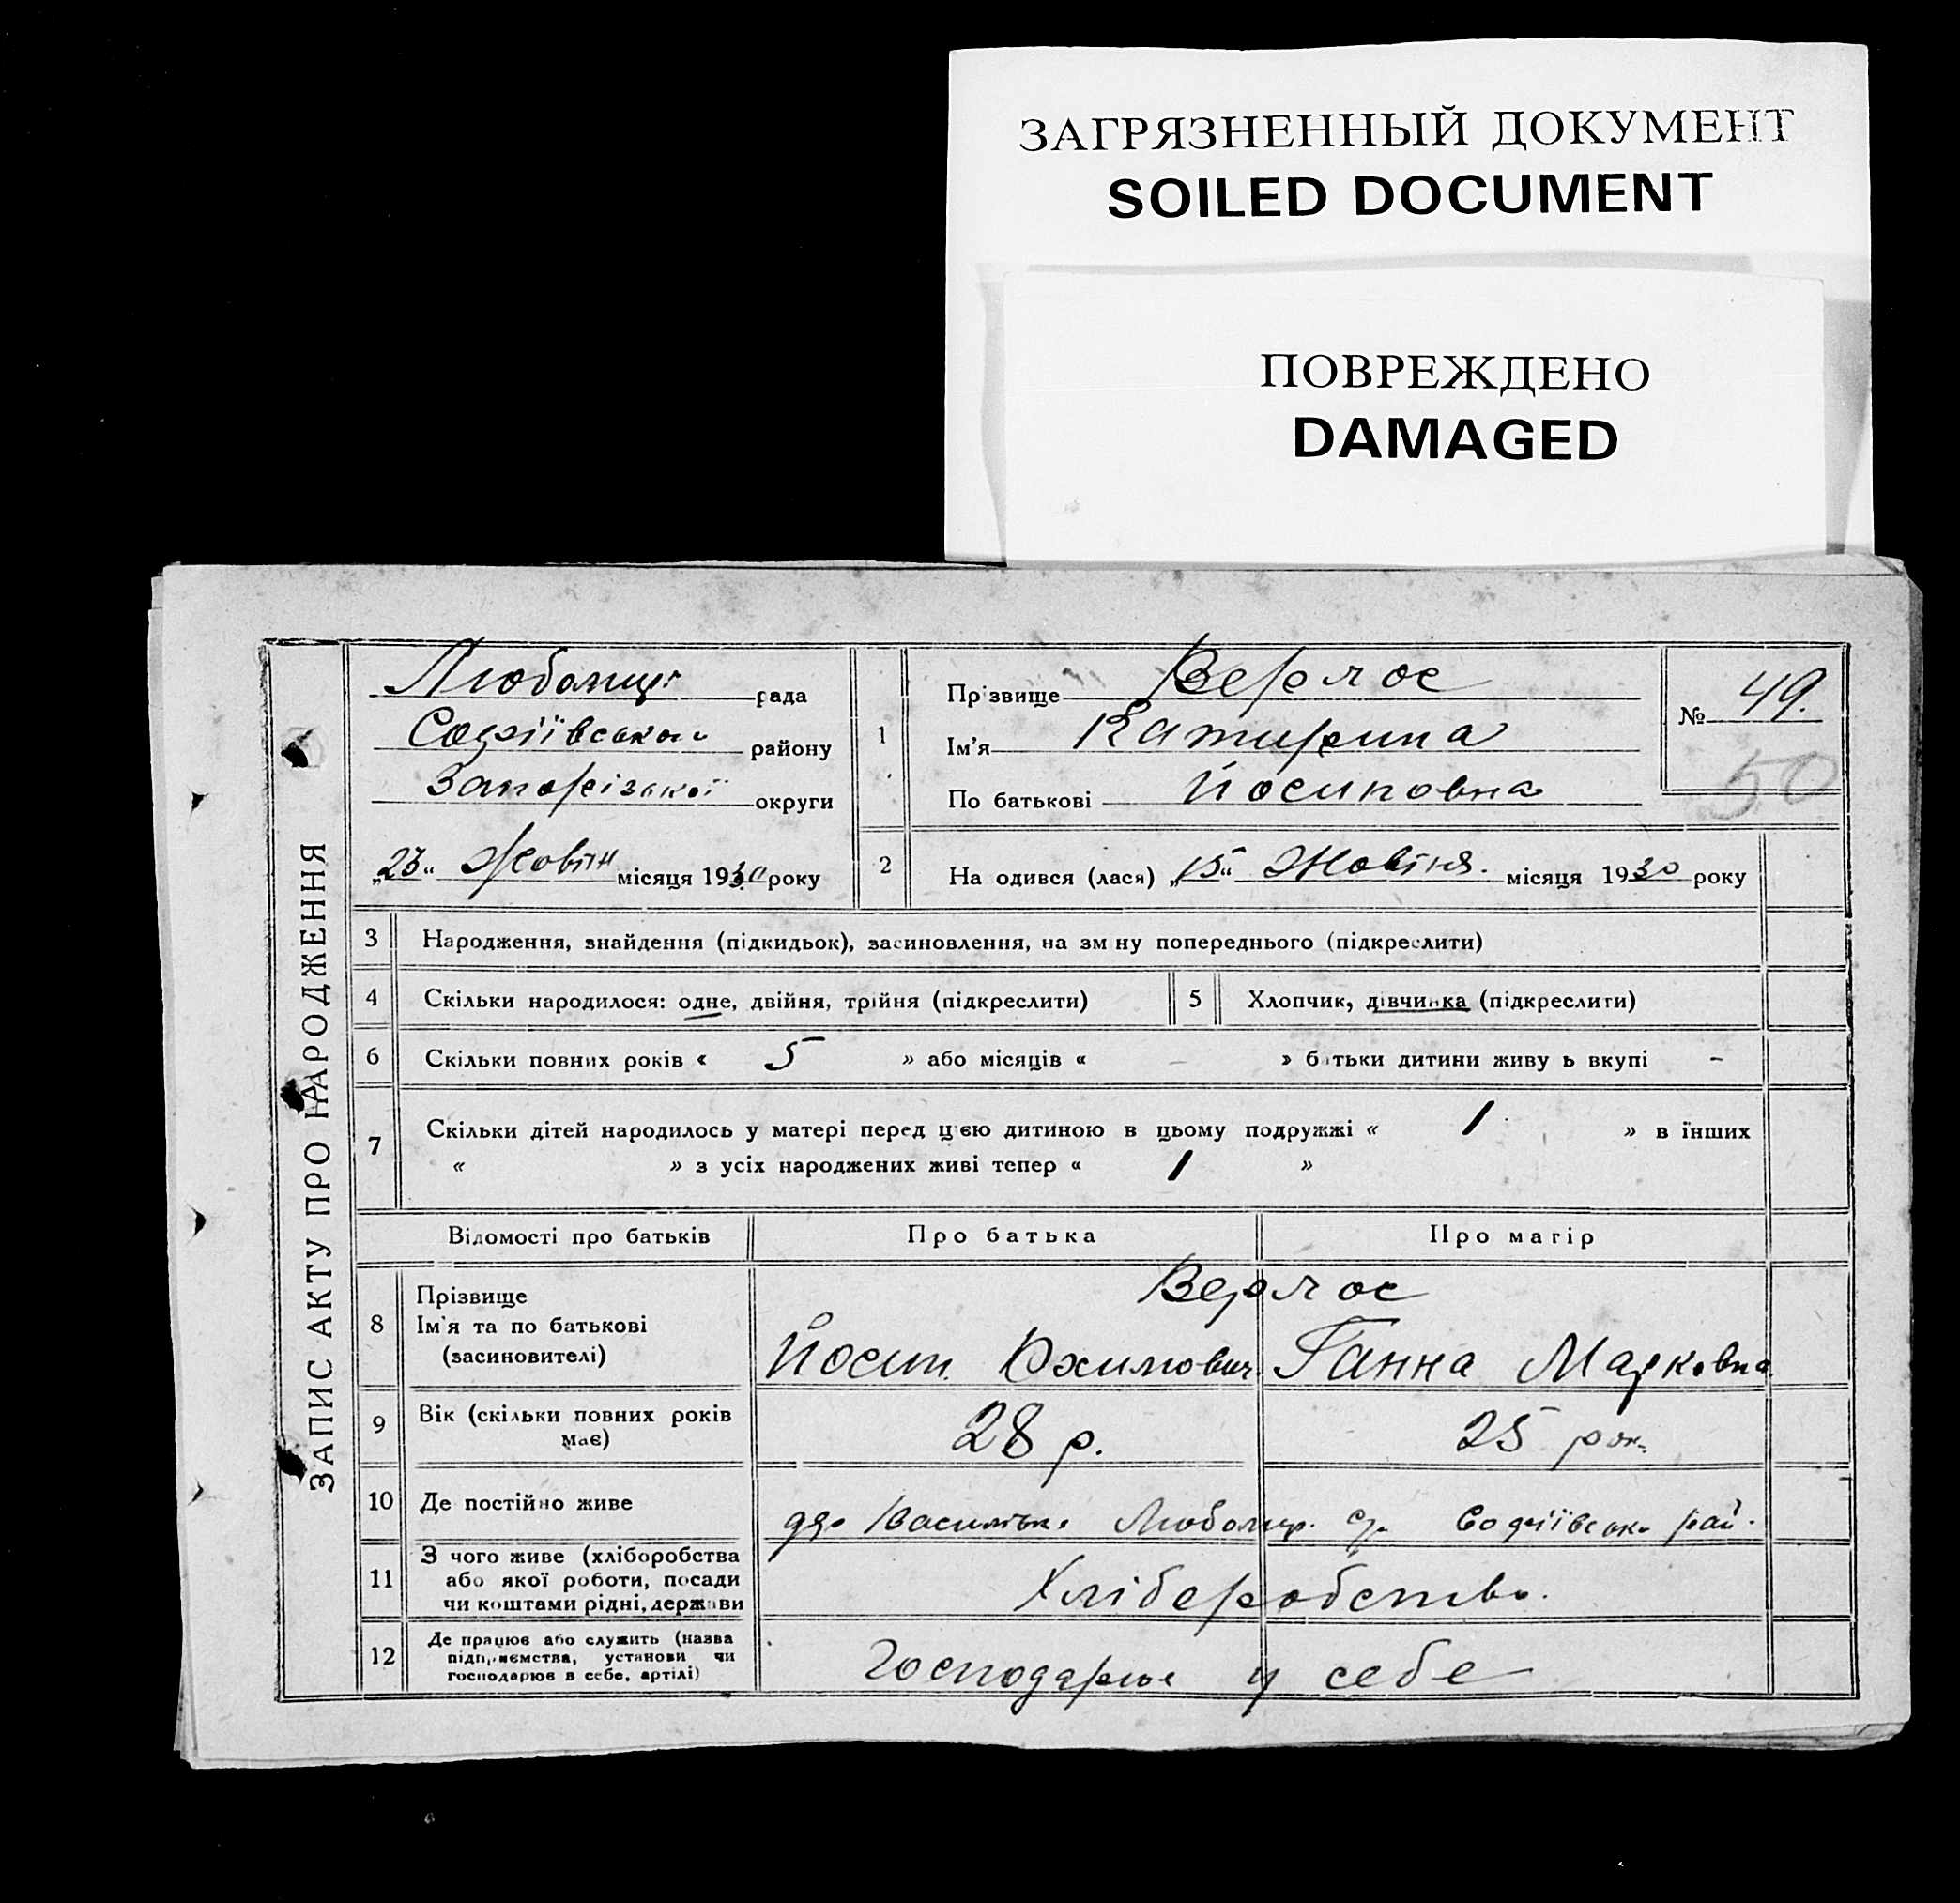 ЗАГРЯЗНЕННЫЙ ДОКУМЕНТ
SOILED DOCUMENT
ПОВРЕЖДЕНО
DAMAGED
ЗАПИС АКТУ ПРО НАРОДЖЕННЯ
рада
Софіївської району
Запорізької округи
„23“ Жовтн місяця 1930 року
1
Прізвище Верлос
Ім'я Катирина
По батькові Йосиповна
№ 49.
50
2
На одився (лася) „15“ Жовтня. місяця 1930 року
3 Народження, знайдення (підкидьок), засиновлення, на зм ну попереднього (підкреслити)
4 Скільки народилося: одне, двійня, трійня (підкреслити)
5 Хлопчик, дівчинка (підкреслити)
6 Скільки повних років « 5 » або місяців « – » батьки дитини живу ь вкупі –
7 Скільки дітей народилось у матері перед цією дитиною в цьому подружжі « 1 » в інших
« » з усіх народжених живі тепер « 1 »
Відомості про батьків
Про батька
Про матір
8 Прізвище
Ім'я та по батькові
(засиновителі)
Верлос
Йосип Юхимович
Ганна Марковна
9 Вік (скільки повних років
має)
28 р.
25 рок.
10 Де постійно живе
Любомир. с/р Софіївськ. рай.
11 З чого живе (хліборобства
або якої роботи, посади
чи коштами рідні, держави
Хліберобство.
12 Де працює або служить (назва
підприємства, установи чи
господарює в себе, артілі)
Господарює у себе